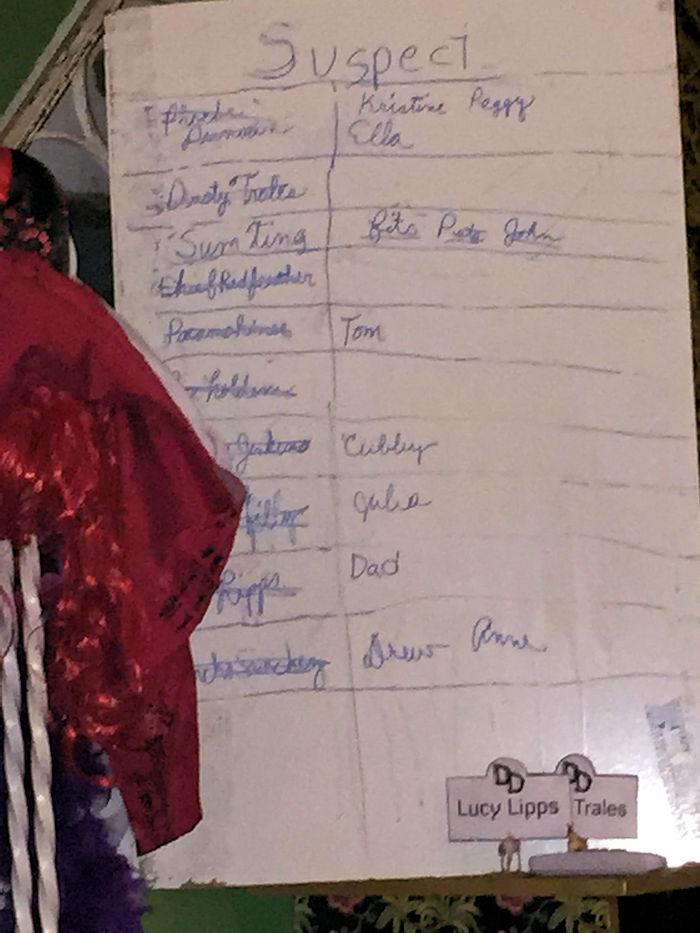 Suspect
Phoebe Kristine Peggy
Ella
Dusty Trales
Sum Ting Bits Pete John
Chief Redfeather
Tom
holden
Cubby
Julia
Lipps Dad
Drew Anne
DD DD
Lucy Lipps Trales